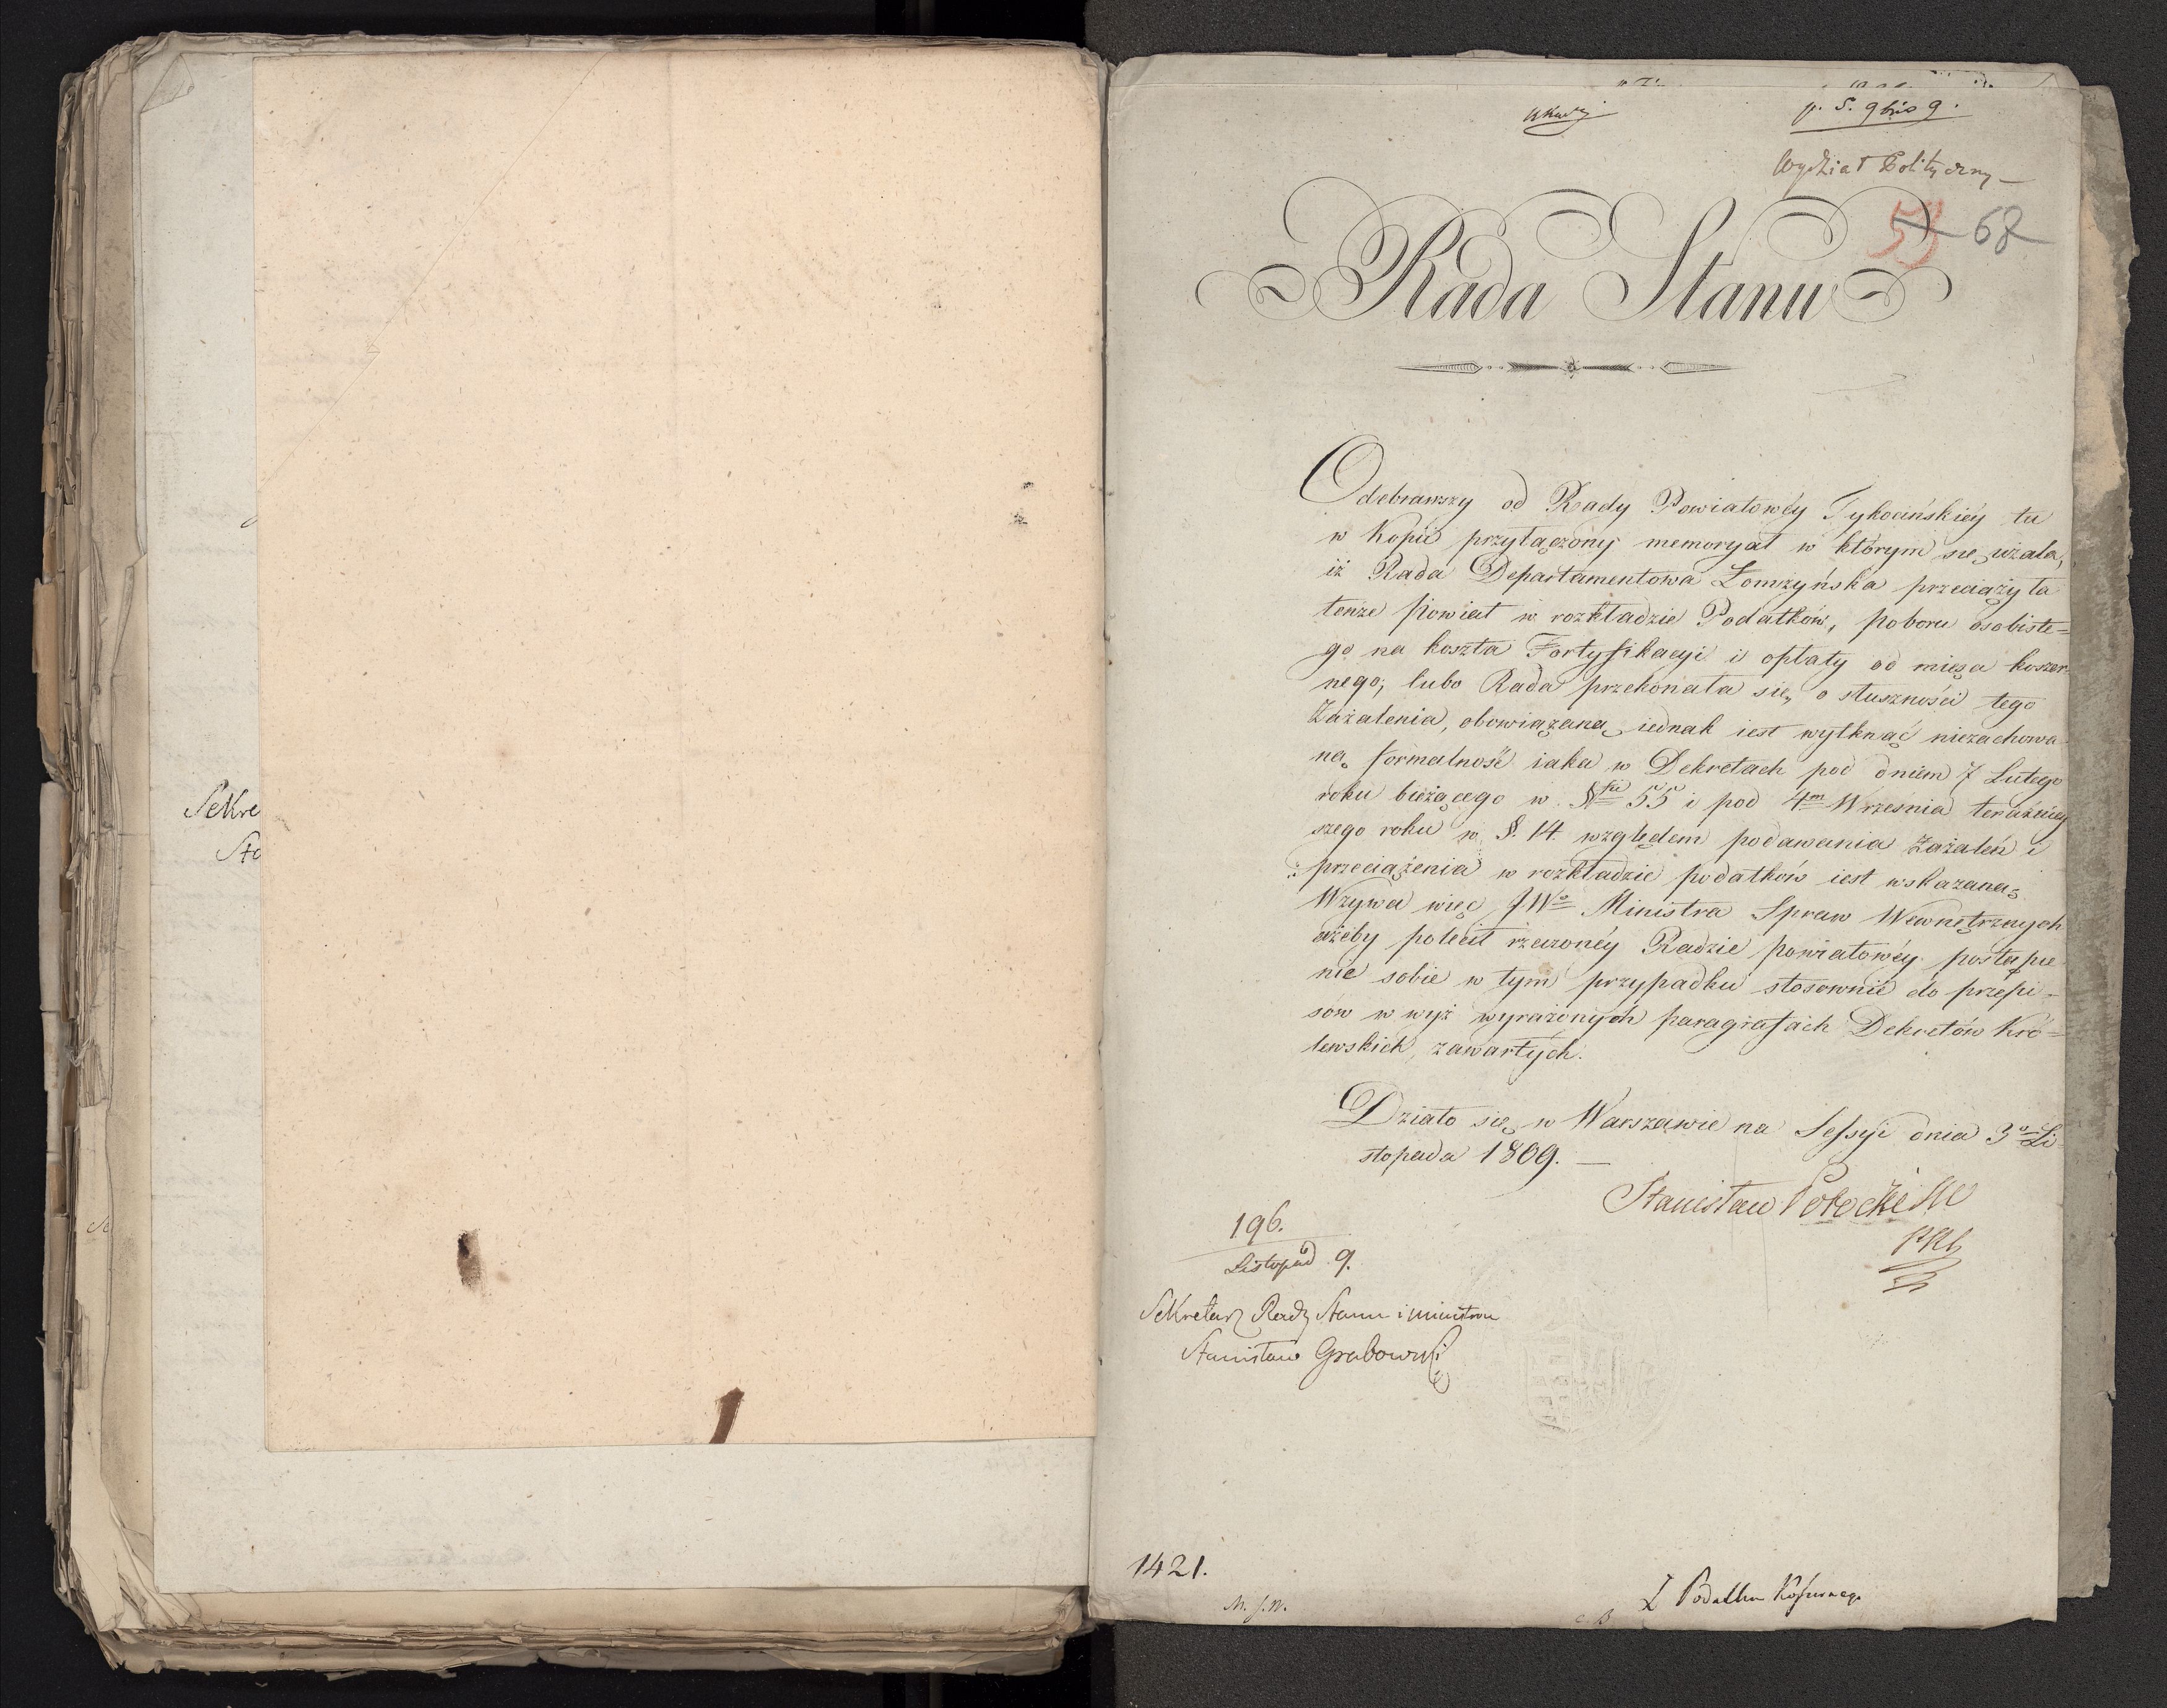 Sekre
Sta
p. 5. 9bris 9.
Wydział Polityczny
53 68
Rada Stanu
Odebrawszy od Rady Powiatowéy Tykocińskiéy tu
w Kopii przyłączony memoryał w którym się użala,
iż Rada Departamentowa Łomżyńska przeciążyła
tenże Powiat w rozkładzie Podatków, poboru osobiste=
go na koszta Fortyfikacyi i opłaty od mięsa koszer
nego; lubo Rada przekonała się, o słuszności tego
Zażalenia, obowiązaną iednak iest wytknąć niezachowa
ną formalność iaka w Dekretach pod dniem 7 Lutego
roku bieżącego w §fie 55 i pod 4m Września teraźniey
szego roku w §. 14. względem podawania Zażaleń i
przeciążenia w rozkładzie podatków iest wskazaną;
Wzywa więc JWo Ministra Spraw Wewnętrznych
ażeby polecił rzeczonéy Radzie powiatowéy postąpie
nie sobie w tym przypadku stosownie do przepi=
sów w wyż wyrażonych paragrafach Dekretów Kró=
lewskich zawartych.
Działo się w Warszawie na Sessyi dnia 3o Li
stopada 1809.
Stanisław Potocki
196.
Listopad 9.
Sekretarz Rady Stanu i ministrow
Stanisław Grabowski
1421.
M. S. W.
Z Podatku Koszernego